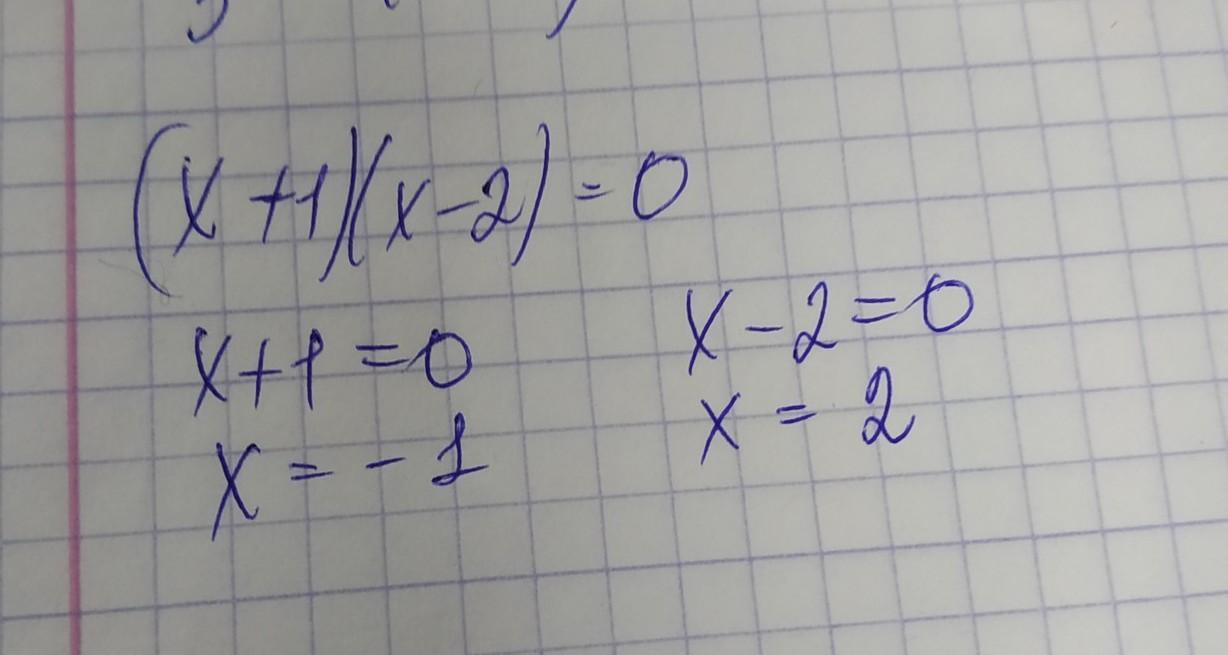 (x+1)(x-2)=0
x+1=0
x=-1
x-2=0
x=2